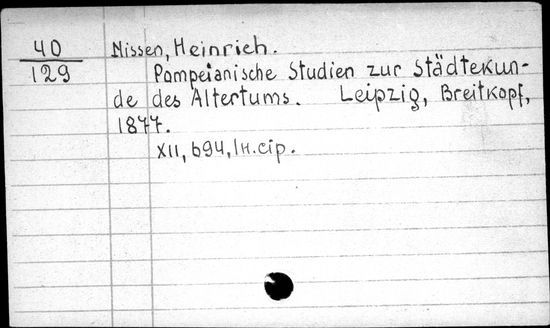 40 Nissen, Heinrich.
129 Pompeianische Studien zur Städtekun-
de des Altertums. Leipzig, Breitkopf,
1877.
XII, 694, 1н.cip.